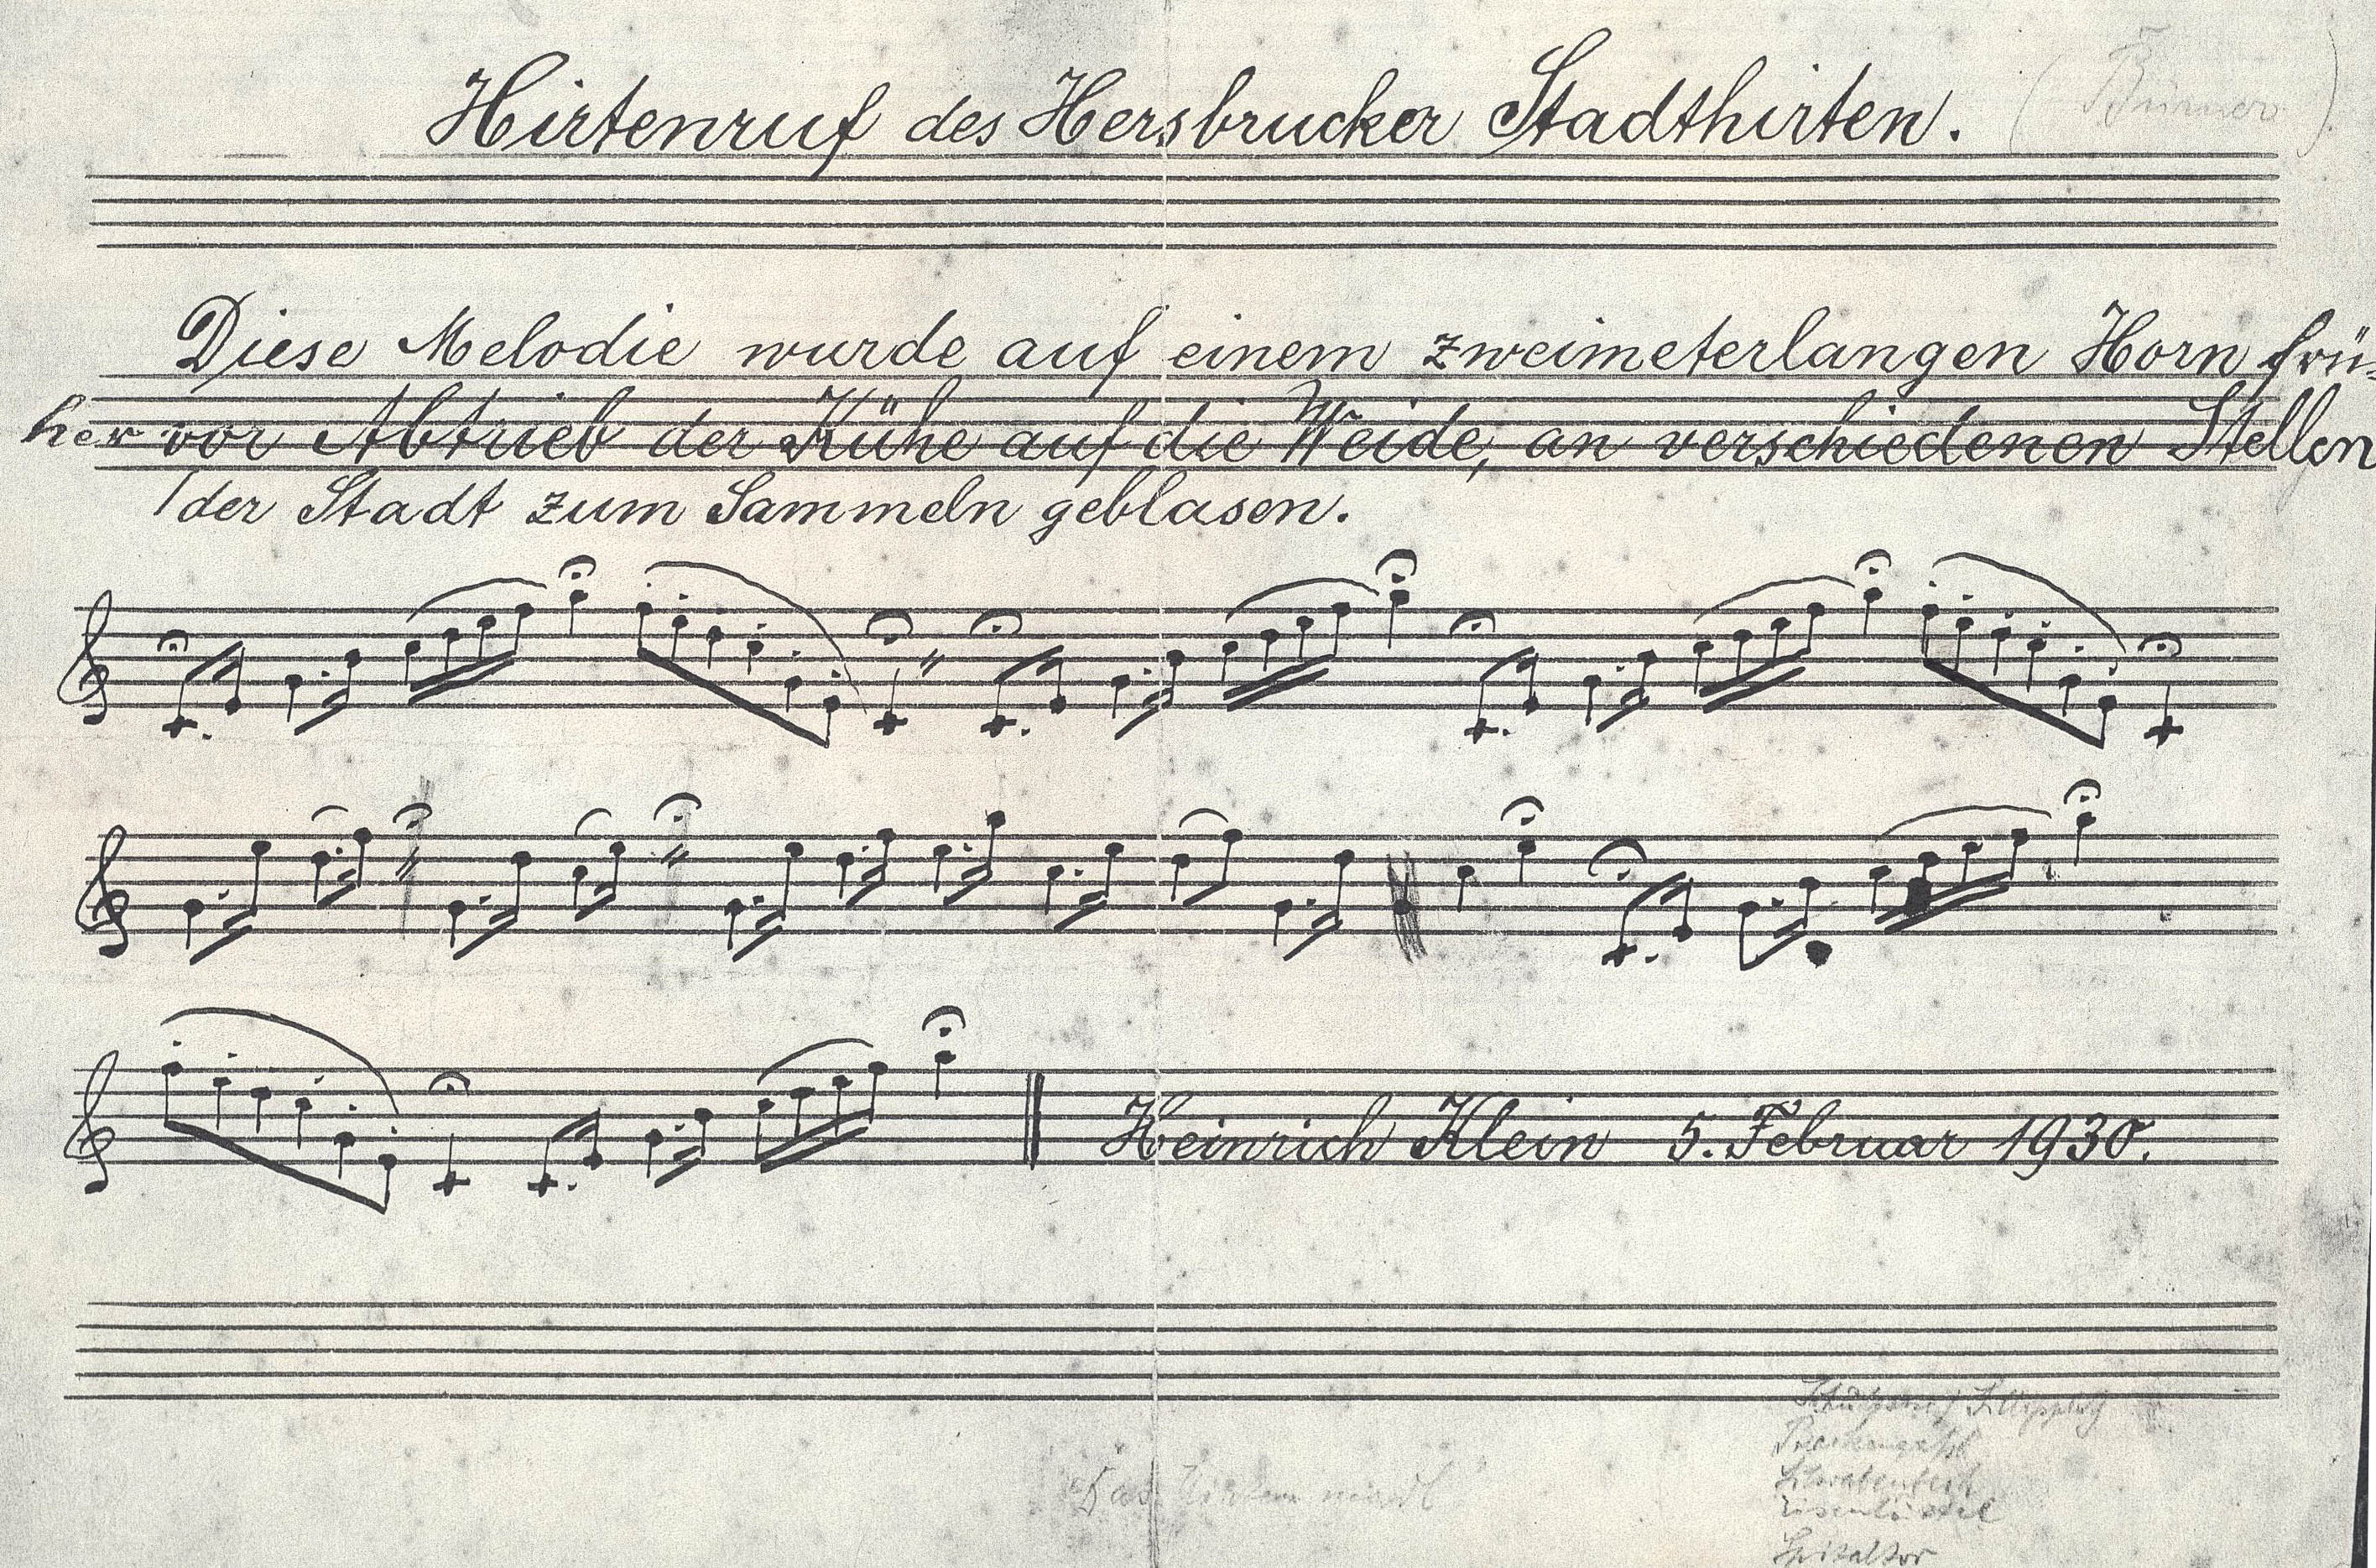 Hirtenruf des Hersbrucker Stadthirten.
Diese Melodie wurde auf einem zweimeterlangen Horn frü-
her vor Abtrieb der Kühe auf die Weide, an verschiedenen Stellen
der Stadt zum Sammeln geblasen.
Heinrich Klein 5. Februar 1930.
Das
Spitaltor